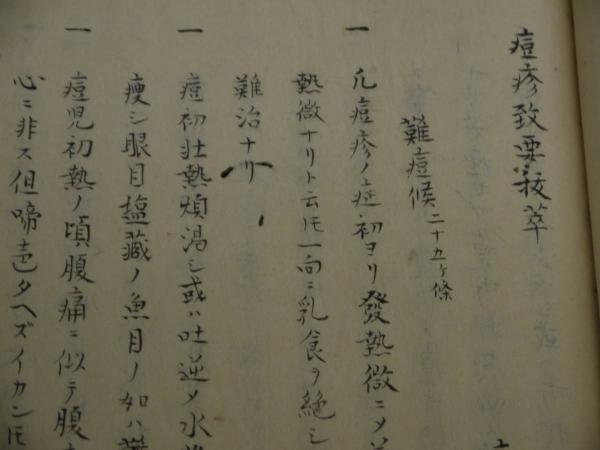 痘疹致要抜萃
難痘候 二十五ヶ條
一 凡痘疹ノ症初ヨリ發熱微ニメ
熱微ナリト云ヒ一向ニ乳食ヲ絶シ
難治ナリ
一 痘初壮熱煩渇シ或ハ吐逆メ水
痩シ眼目塩藏ノ魚目ノ如ハ
一 痘児初熱ノ頃腹痛ニ似テ腹
心ニ非ス但啼
タヘズイカンヒ